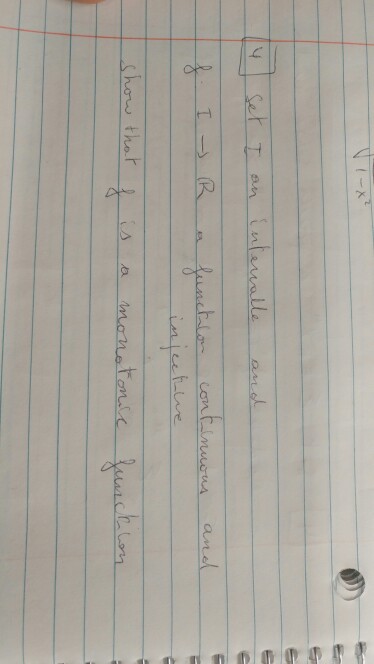 √1-x²
4 Set I an intervalle and
f: I → R a function continuous and
injective
show that f is a monotonic function